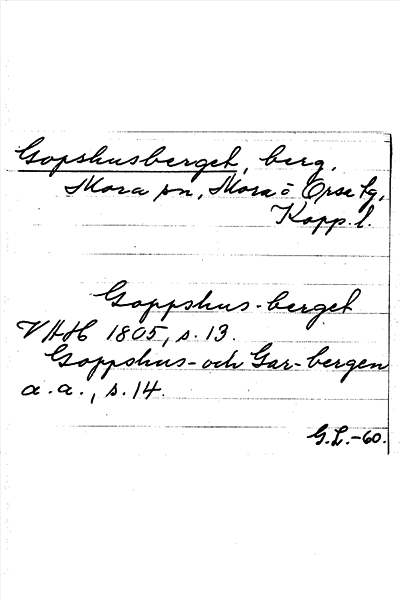 Gopshusberget, berg,
Mora sn, Mora o Orsa tg,
Kopp. l.
Goppshus-berget
VHH 1805, s. 13.
Goppshus- och Gar-bergen
a. a., s. 14.
G.L.-60.